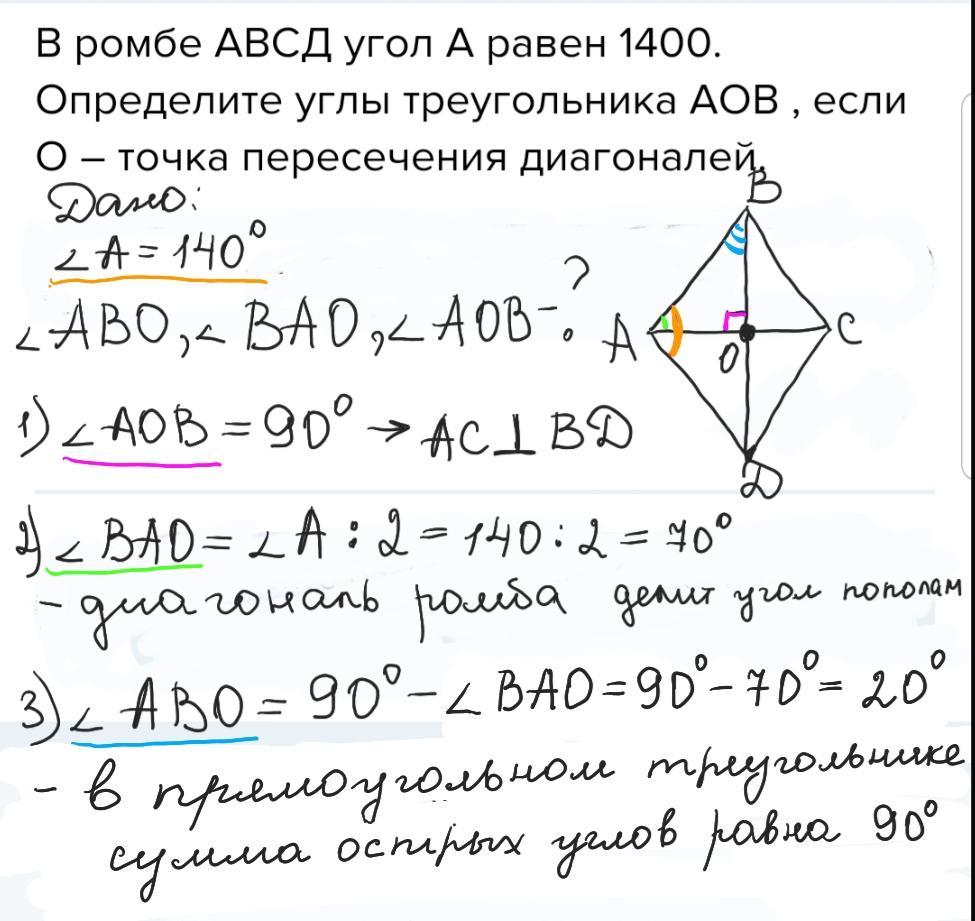 В ромбе АВСД угол А равен 1400.
Определите углы треугольника АОВ , если
О – точка пересечения диагоналей.
Дано:
∠A = 140°
∠ABO, ∠BAO, ∠AOB - ?
B
A
O
C
Д
1) ∠AOB = 90° → AC⊥BД
2) ∠BAO = ∠A : 2 = 140 : 2 = 70°
- диагональ ромба делит угол пополам
3) ∠ABO = 90° - ∠BAO = 90° - 70° = 20°
- в прямоугольном треугольнике
сумма острых углов равна 90°